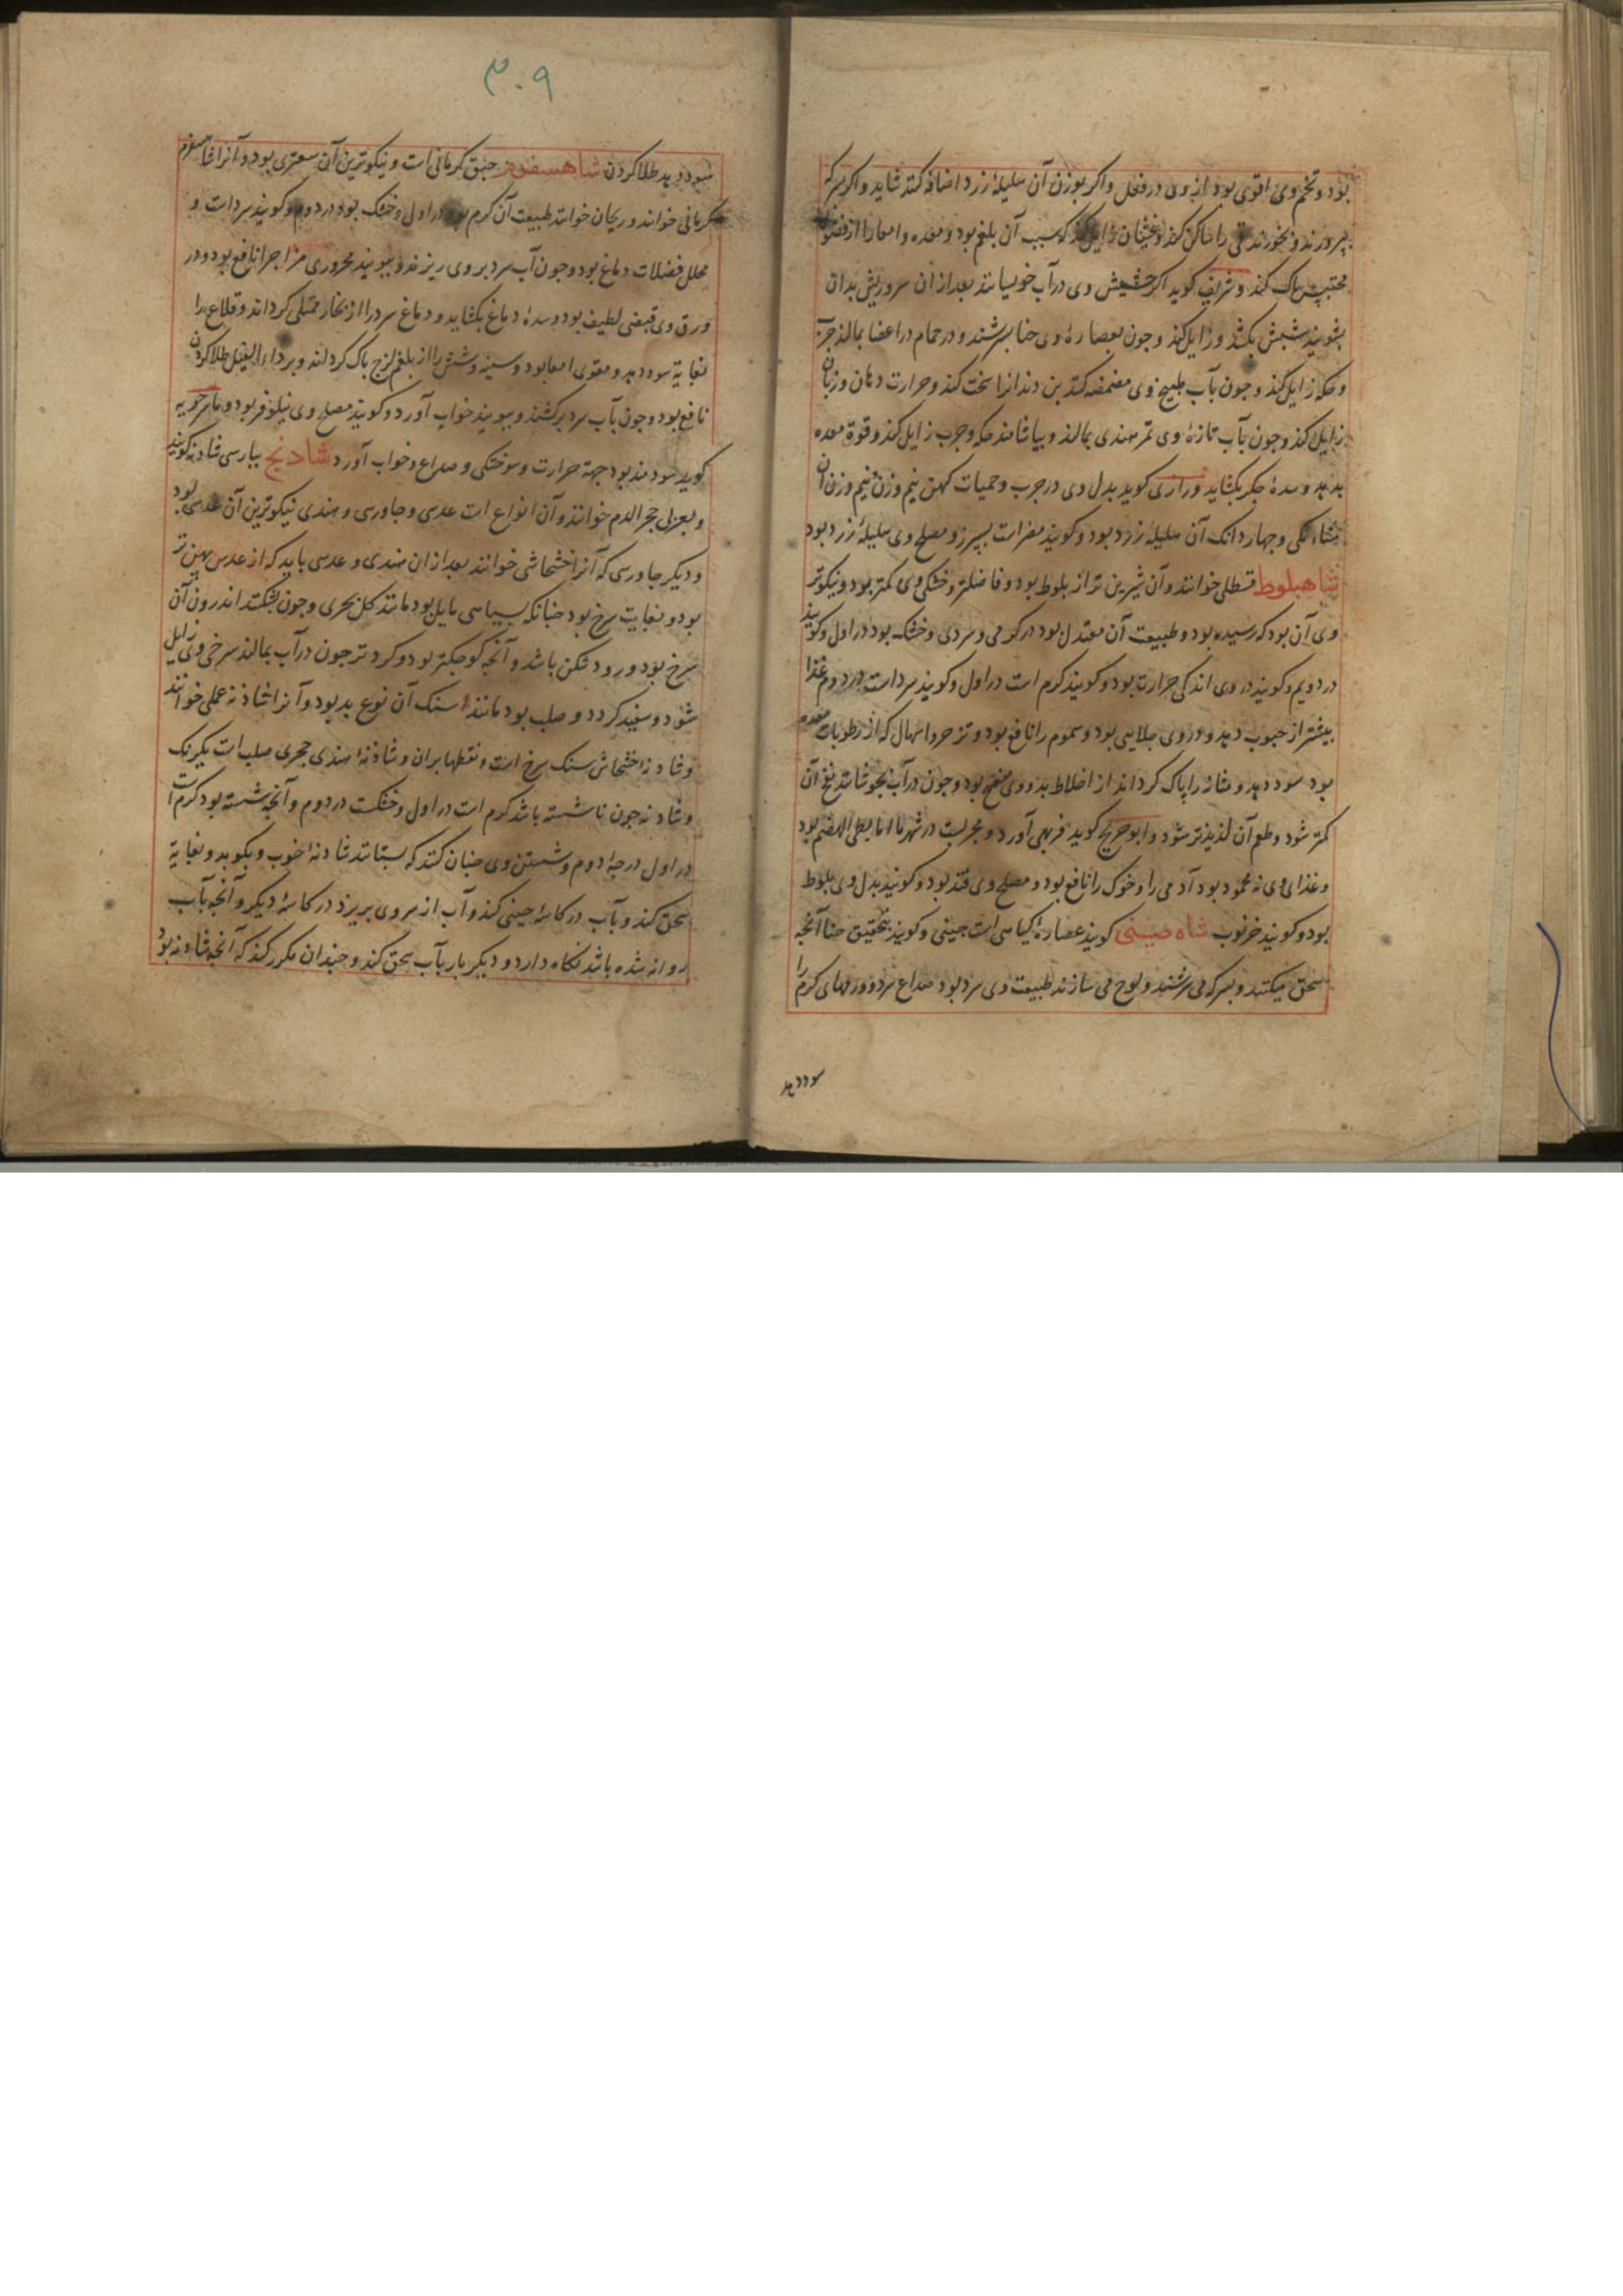 بود و تخم وی اقوی بود از وی در فعل و اکر بوزن آن هلیلهٔ زرد اضافه کنند شاید و اکر بسرکه
بپرورند و بخورند قی را ساکن کند و غثیان زایل کند که سبب آن بلغم بود و معده و امعا را از فضول
محتبس پاک کند و شریف کوید اکر حشیش وی در آب خویسانند بعد از ان سر و ریش بدان
بشویند شپش بکشد و زایل کند و چون بعصارهٔ وی حنا بسرشند و در حمام در اعضا بمالند جرب
و حکه زایل کند و چون بآب طبیخ وی مضمضه کنند بن دندانرا سخت کند و حرارت دهان و زبان
زایل کند و چون بآب تازهٔ وی تمر هندی بمالند و بیاشامند حکه و جرب زایل کند و قوة معده
بدهد و سدهٔ جکر بکشاید و رازی کوید بدل وی در جرب و حمیات کهن نیم وزن نیم وزن آن
سناء مکی و چهار دانک آن هلیلهٔ زرد بود و کویند مضر است بسپرز و مصلح وی هلیلهٔ زرد بود
شاهبلوط قسطل خوانند و آن شیرین تر از بلوط بود و فاضلتر و خشکی وی کمتر بود و نیکوتر
وی آن بود که رسیده بود و طبیعت آن معتدل بود در کرمی و سردی و خشک بود در اول و کویند
در دویم و کویند در وی اندکی حرارت بود و کویند کرم است در اول و کویند سرد است در دوم غذا
بیشتر از حبوب دهد و در وی جلایی بود و سموم را نافع بود و نزحر و اسهال که از رطوبات معده
بود سود دهد و مثانه را پاک کرداند از اخلاط بد و وی منفخ بود و چون در آب بجوشانند نفخ آن
کمتر شود و طعم آن لذیذتر شود و ابو جریج کوید فربهی آورد و مجربست در شهر ما اما بطی الهضم بود
و غذای وی نه محمود بود آدمی را و خوک را نافع بود و مصلح وی قند بود و کویند بدل وی بلوط
بود و کویند خرنوب شاه صینی کویند عصارهٔ کیاهی است چینی و کویند بتحقیق حنا آنجه
سحق میکنند و بسرکه می سرشند و لوح می سازند طبیعت وی سرد بود صداع سرد و ورمهای کرم را
سود دهد
۳۰۹
سود دهد طلا کردن شاهسفرم حبق کرمانی است و نیکوترین آن سعتری بود و آنرا شاهسفرم
کرمانی خوانند و ریحان خوانند طبیعت آن کرم بود در اول و خشک بود در دوم و کویند سرد است و
محلل فضلات دماغ بود و چون آب سرد بر وی ریزند و ببویند محروری مزاجرا نافع بود و در
ورق وی قبضی لطیف بود و سدهٔ دماغ بکشاید و دماغ سرد را از بخار ممتلی کرداند و قلاع را
بغایة سود دهد و مقوی امعا بود و سینه و شش را از بلغم لزج پاک کرداند و بر داء الفیل طلا کردن
نافع بود و چون بآب سرد برکشند و ببویند خواب آورد و کویند مصلح وی نیلوفر بود و ماسرجویه
کوید سودمند بود جهة حرارت و سوختکی و صداع و خواب آورد شادنج بپارسی شادنه کویند
و بعربی حجر الدم خوانند و آن انواع است عدسی و جاورسی و هندی نیکوترین آن عدسی بود
و دیکر جاورسی که آنرا خشخاشی خوانند بعد از ان هندی و عدسی باید که از عدس پهن تر
بود و بغایت سرخ بود چنانکه بسیاهی مایل بود مانند کل بحری و چون بشکنند اندرون آن
سرخ بود و زود شکن باشد و آنچه کوچکتر بود و کرد تر چون در آب بمالند سرخی وی زایل
شود و سفید کردد و صلب بود مانند سنک آن نوع بد بود و آنرا شاذنه عملی خوانند
و شادنهٔ خشخاش سنک سرخ است و نقطها بر ان و شادنهٔ هندی حجری صلب است یکرنک
و شادنه چون ناشسته باشد کرم است در اول و خشکست در دوم و آنچه شسته بود کرم است
در اول درجهٔ دوم و شستن وی چنان کنند که بستانند شادنهٔ خوب و بکوبد و بغایة
سحق کند و بآب در کاسهٔ چینی کند و آب از سر وی بریزد در کاسهٔ دیکر و آنچه بآب
روانه شده باشد نکاه دارد و دیکر بار بآب سحق کند و چندان مکرر کند که آنچه شادنه بود